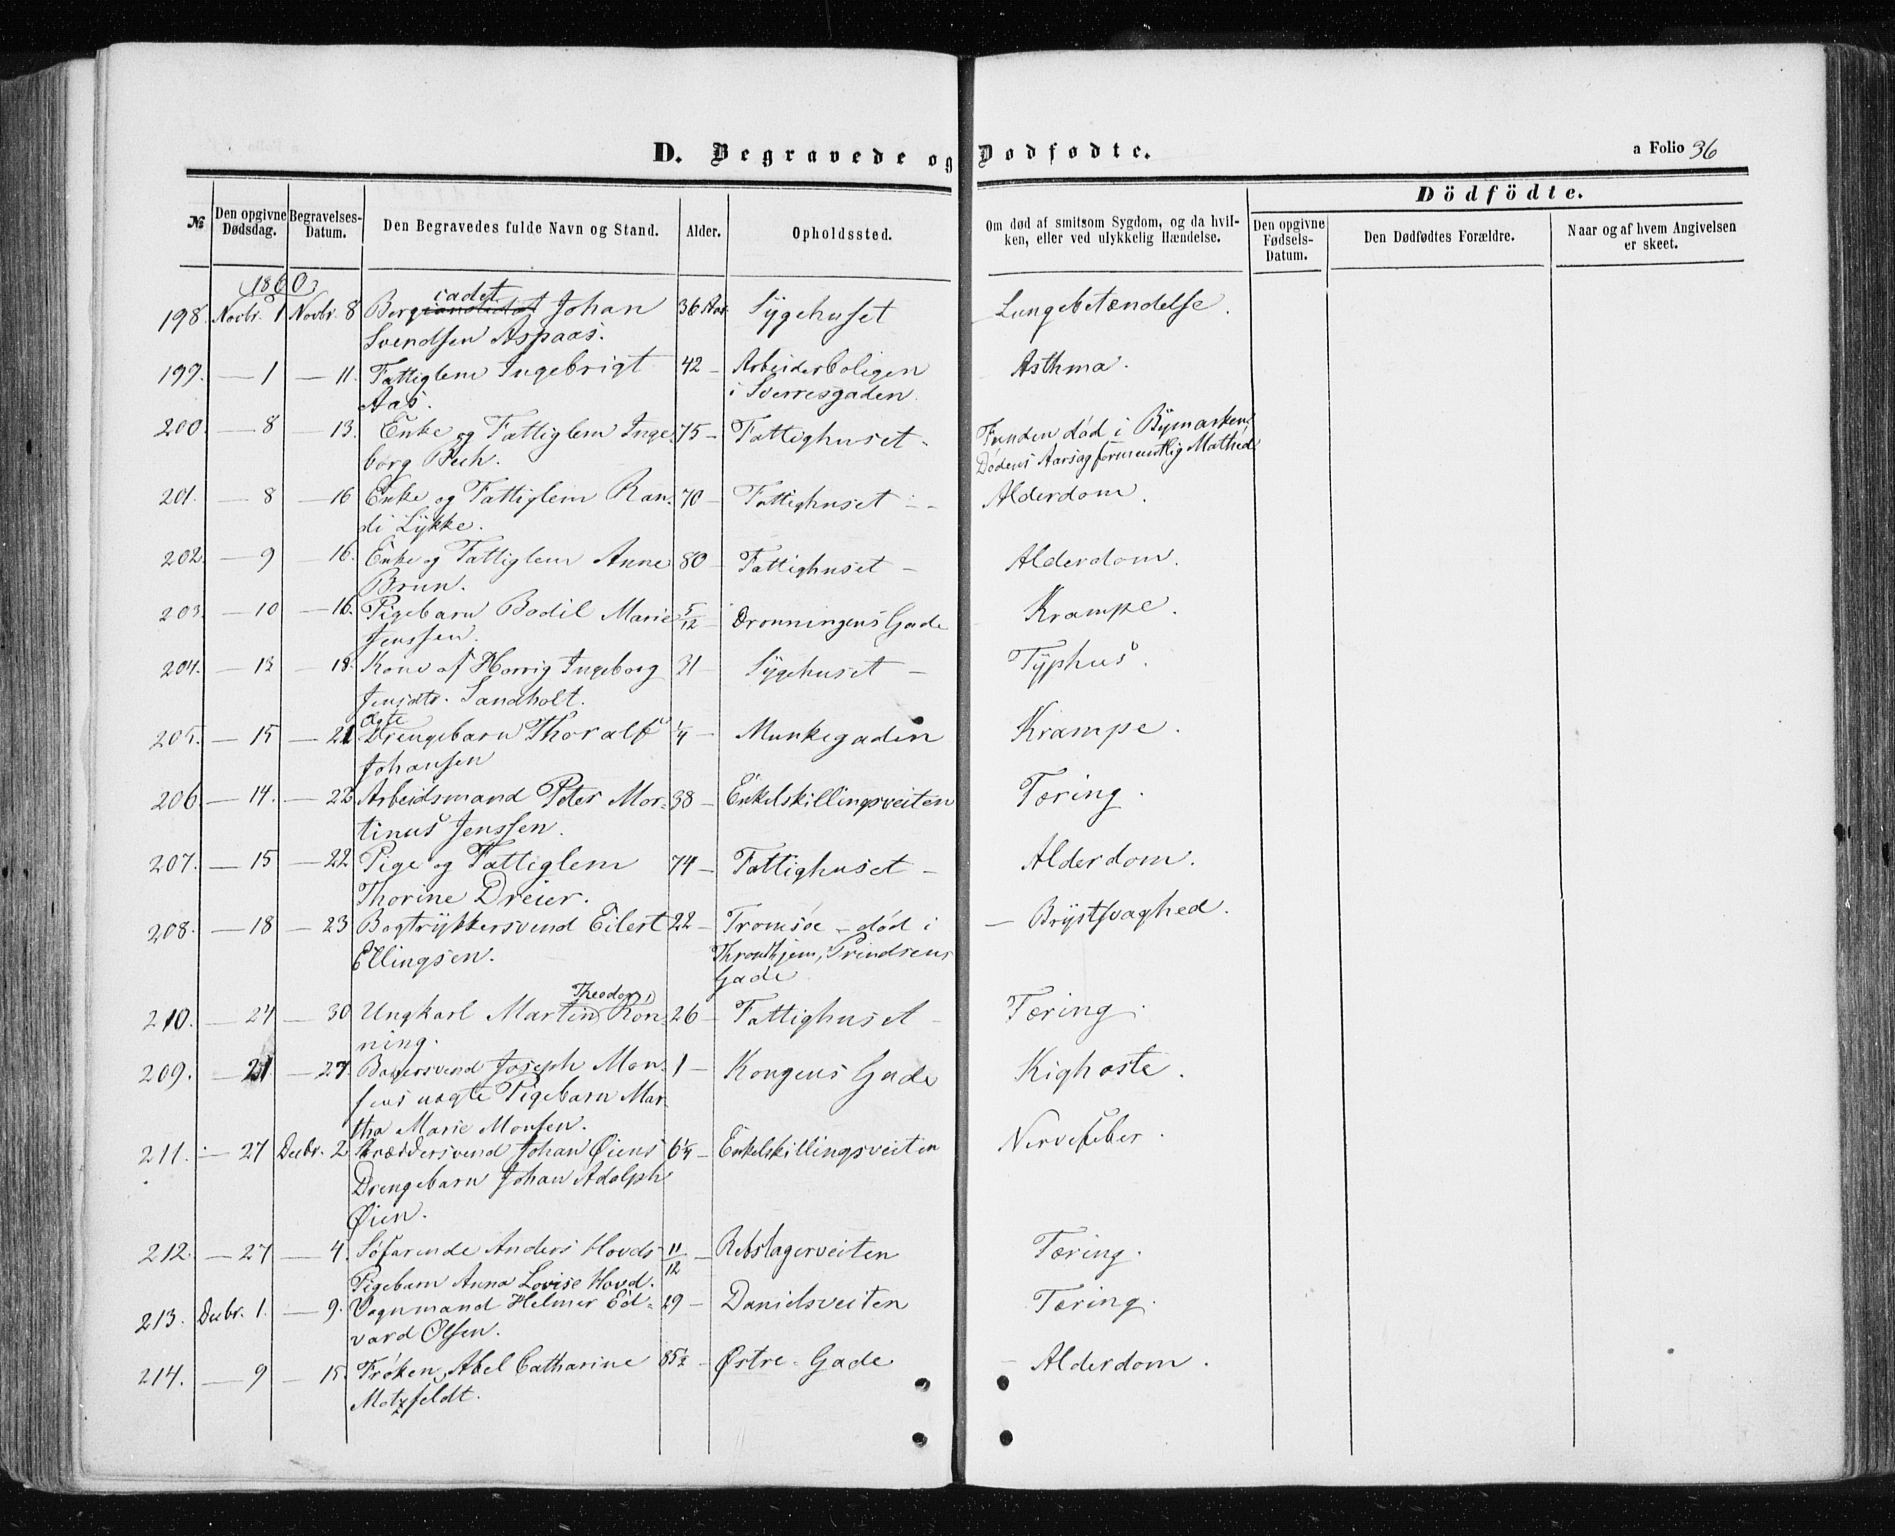 D. Begravede og Dödfödte.
a Folio 36
Dödfödte.
№ Den opgivne Dødsdag. Begravelses-Datum. Den Begravedes fulde Navn og Stand. Alder. Opholdssted. Om død af smitsom Sygdom, og da hvilken, eller ved ulykkelig Hændelse. Den opgivne Fødsels-Datum. Den Dødfødtes Forældre. Naar og af hvem Angivelsen er skeet.
1860
cadet
198. Novbr. 1 Novbr. 8 Berg Johan 36 Aar Sygehuset Lungebetændelse.
Svendsen Aspaas.
199. — 1 — 11. Fattiglem Ingebrigt 42 — Arbeiderboligen Asthma.
Aas. i Sverresgaden.
200. — 8 — 13. Enke og Fattiglem Inge- 75 — Fattighuset - Funden død i Bymarken,
borg Bech. Dødens Aarsag formentlig Mathed
201. — 8 — 16 Enke og Fattiglem Ran- 70 — Fattighuset - Alderdom.
di Lykke.
202. — 9 — 16. Enke og Fattiglem Anne 80 — Fattighuset — Alderdom.
Brun.
203. — 10 — 16. Pigebarn Bodil Marie 5/12 — Dronningens Gade Krampe.
Jenssen.
204. — 13 — 18. Kone af Horrig Ingeborg 31 — Sygehuset — Typhus.
Jensdtr. Sandholt.
ægte
205. — 15 — 21 Drengebarn Thoralf 1/4 — Munkegaden Krampe.
Johansen
206. — 14. — 22 Arbeidsmand Peter Mor- 38 — Enkelskillingsveiten Tæring.
tinus Jenssen.
207. — 15 — 22 Pige og Fattiglem 74 — Fattighuset — Alderdom.
Thorine Dreier.
208. — 18 — 23 Bogtrykkersvend Eilert 22 — Tromsøe — død i — Brystsvaghed.
Ellingsen. Throndhjem, Prindsens
Gade
Theodor
210. — 24 — 30 Ungkarl Martin Rön- 26 — Fattighuset — Tæring.
ning.
209. — 21 — 27 Bagersvend Joseph Mon- 1 — Kongens Gade Kighoste.
sens uægte Pigebarn Mar-
tha Marie Monsen.
211. — 27 Decbr. 2 Skræddersvend Johan Øiens 6 1/4 — Enkelskillingsveiten Nervefeber.
Drengebarn Johan Adolph
Øien.
212. — 27 — 4. Søfarende Anders Hovds 11/12 — Rebslagerveiten Tæring.
Pigebarn Anna Lovise Hovd.
213. Decbr. 1. — 9. Vognmand Helmer Ed- 29 — Danielsveiten Tæring.
vard Olsen.
214. — 9 — 15. Frøken Abel Catharine 85 1/2 — Østre Gade — Alderdom.
Motzfeldt.